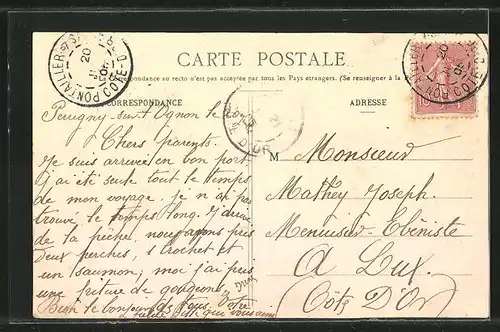 CARTE POSTALE
respondance au recto n'est pas acceptée par tous les Pays étrangers. (Se renseigner à la
CORRESPONDANCE
ADRESSE
PONTAILLER-S-SAONE
20
COTE-D'OR
D'OR
Perrigny-sur-l'Ognon le
Chers parents.
Je suis arrivée en bon port
j'ai été seule tout le temps
de mon voyage, je n'ai pas
trouvé le temps long. J'arrive
de la pêche, nous avons pris
deux perches, 1 brochet et
un saumon; moi j'ai pris
une friture de goujons.
Bien le bonjour de tous. Votre
qui vous aime
M Monsieur
Mathey Joseph.
Menuisier-Ebéniste
A Lux.
(Côte D'Or)